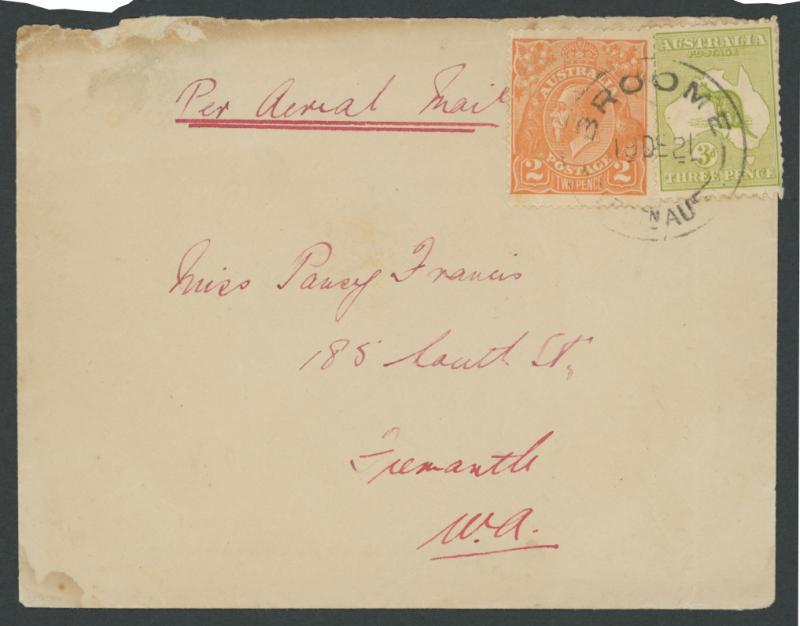 Per Aerial Mail
AUSTRALIA
POSTAGE
2 2
TWO PENCE
AUSTRALIA
POSTAGE
3D
THREE PENCE
BROOME
19 DE 21
Miss Pancy Francis
185 South St,
Fremantle
W.A.